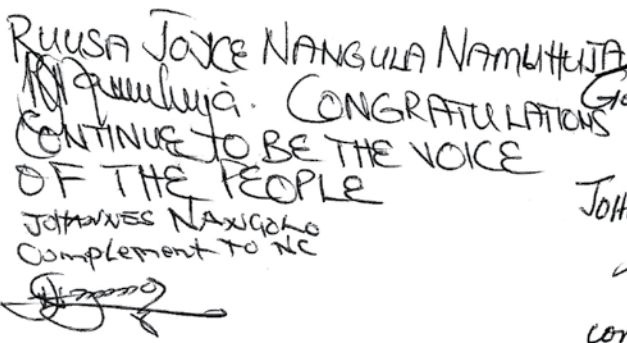 RUUSA JOYCE NANGULA NAMUHUJA
CONGRATULATIONS
CONTINUE TO BE THE VOICE
OF THE PEOPLE
JOHANNES NANGOLO
Complement TO NC
JOH
con